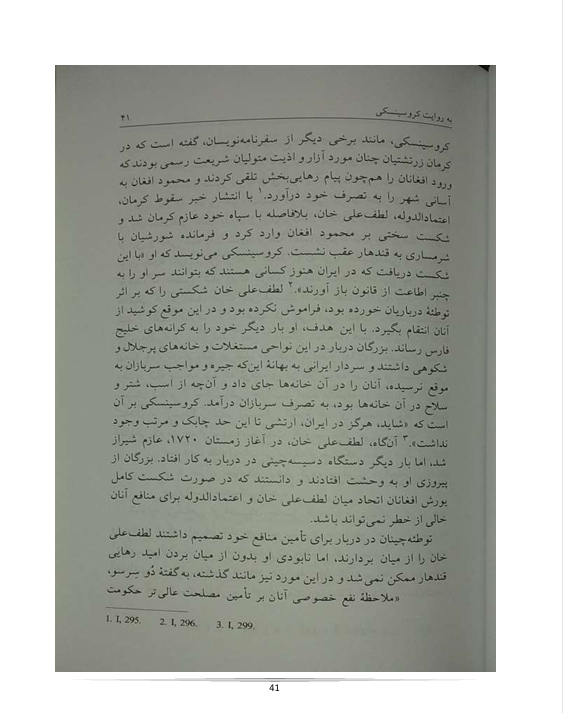 به روایت کروسینسکی ۴۱
کروسینسکی، مانند برخی دیگر از سفرنامه‌نویسان، گفته است که در
کرمان زرتشتیان چنان مورد آزار و اذیت متولیان شریعت رسمی بودند که
ورود افغانان را هم‌چون پیام رهایی‌بخش تلقی کردند و محمود افغان به
آسانی شهر را به تصرف خود درآورد.۱ با انتشار خبر سقوط کرمان،
اعتمادالدوله، لطف‌علی خان، بلافاصله با سپاه خود عازم کرمان شد و
شکست سختی بر محمود افغان وارد کرد و فرمانده شورشیان با
شرمساری به قندهار عقب نشست. کروسینسکی می‌نویسد که او «با این
شکست دریافت که در ایران هنوز کسانی هستند که بتوانند سر او را به
چنبر اطاعت از قانون باز آورند».۲ لطف‌علی خان شکستی را که بر اثر
توطئهٔ درباریان خورده بود، فراموش نکرده بود و در این موقع کوشید از
آنان انتقام بگیرد. با این هدف، او بار دیگر خود را به کرانه‌های خلیج
فارس رساند. بزرگان دربار در این نواحی مستغلات و خانه‌های پرجلال و
شکوهی داشتند و سردار ایرانی به بهانهٔ این‌که جیره و مواجب سربازان به
موقع نرسیده، آنان را در آن خانه‌ها جای داد و آن‌چه از اسب، شتر و
سلاح در آن خانه‌ها بود، به تصرف سربازان درآمد. کروسینسکی بر آن
است که «شاید، هرگز در ایران، ارتشی تا این حد چابک و مرتب وجود
نداشت».۳ آن‌گاه، لطف‌علی خان، در آغاز زمستان ۱۷۲۰، عازم شیراز
شد، اما بار دیگر دستگاه دسیسه‌چینی در دربار به کار افتاد. بزرگان از
پیروزی او به وحشت افتادند و دانستند که در صورت شکست کامل
یورش افغانان اتحاد میان لطف‌علی خان و اعتمادالدوله برای منافع آنان
خالی از خطر نمی‌تواند باشد.
توطئه‌چینان در دربار برای تأمین منافع خود تصمیم داشتند لطف‌علی
خان را از میان بردارند، اما نابودی او بدون از میان بردن امید رهایی
قندهار ممکن نمی‌شد و در این مورد نیز مانند گذشته، به‌گفتهٔ دُو سِرسو،
«ملاحظهٔ نفع خصوصی آنان بر تأمین مصلحت عالی‌تر حکومت
1. I, 295. 2. I, 296. 3. I, 299.
41